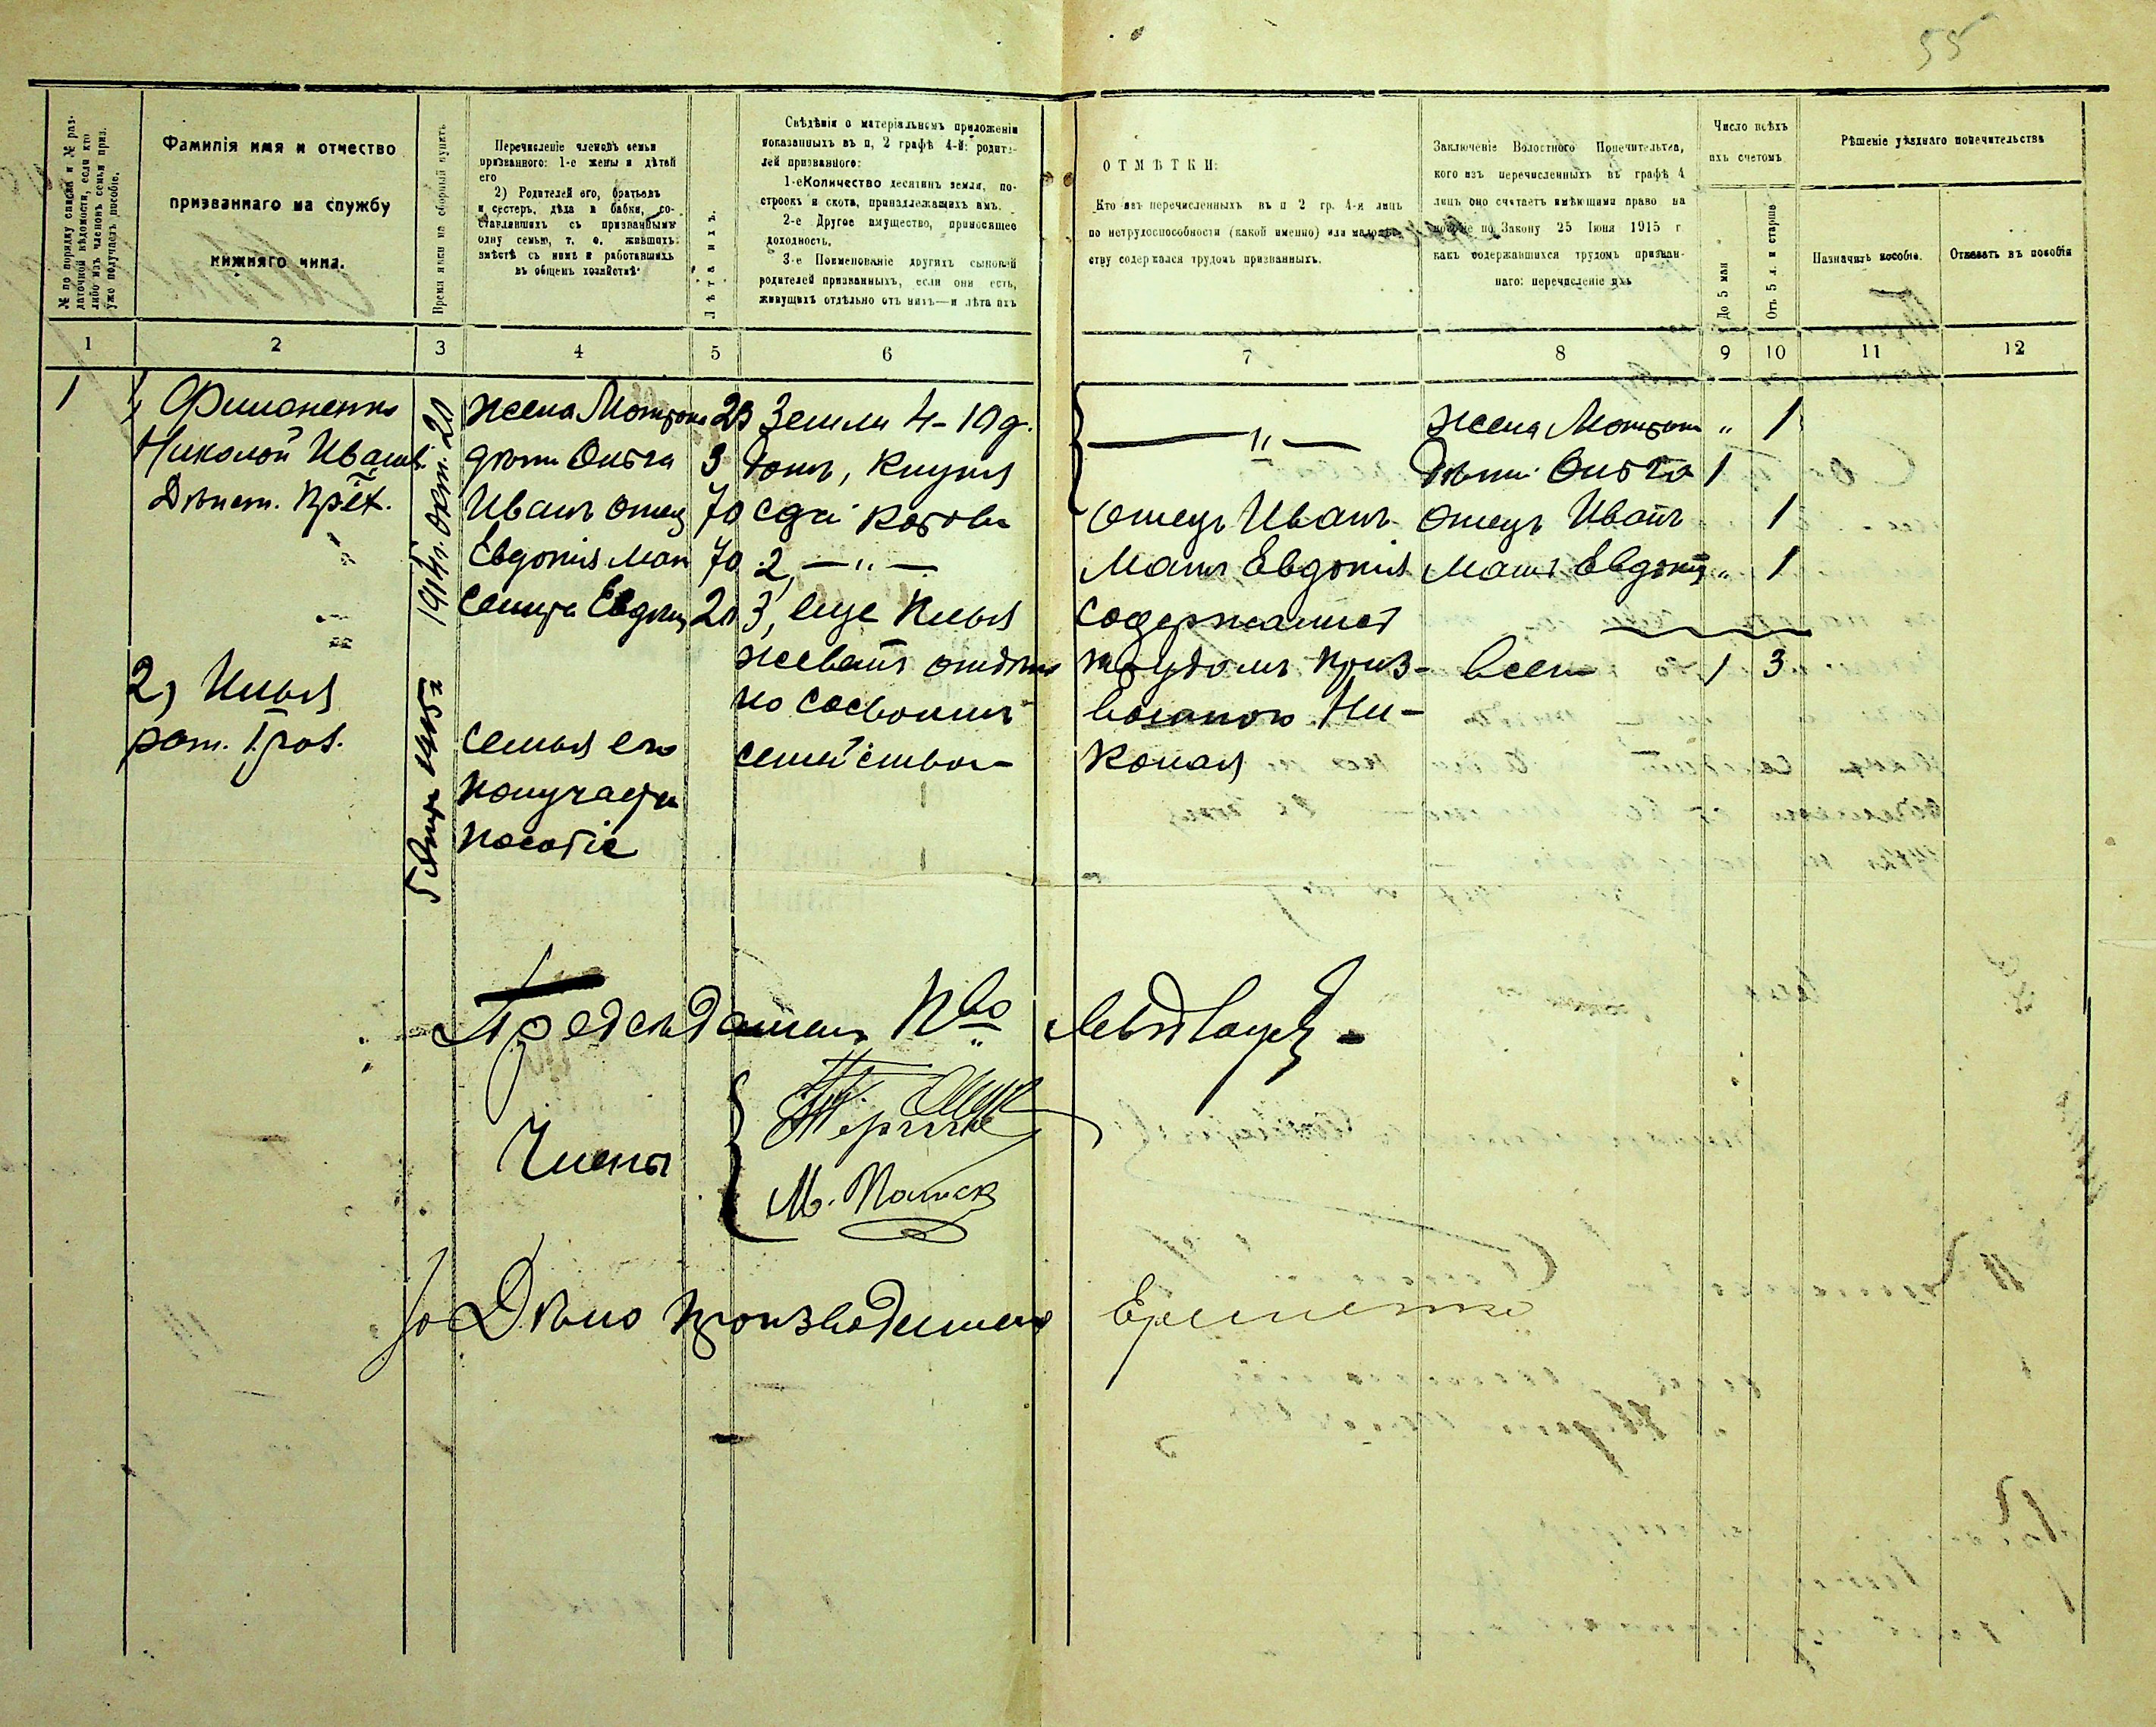 55
№ по порядку списка и № раз-
даточной вѣдомости, если кто
либо изъ членовъ семьи приз.
уже получаетъ пособіе.
Фамилія имя и отчество
призваннаго на службу
нижняго чина.
Время явки на сборный пунктъ
Перечисленіе членовъ семьи
призваннаго: 1-е жены и дѣтей
его
2) Родителей его, братьевъ
и сестеръ, дѣда и бабки, со-
ставлявшихъ съ призваннымъ
одну семью, т. е. жившихъ
вмѣстѣ съ нимъ и работавшихъ
въ общемъ хозяйствѣ
Лѣта ихъ.
Свѣдѣнія о матеріальномъ приложеніи
показанныхъ въ п, 2 графѣ 4-й: родите-
лей призваннаго:
1-е Количество десятинъ земли, по-
строекъ и скота, принадлежащихъ имъ.
2-е Другое имущество, приносящее
доходность.
3-е Поименованіе другихъ сыновей
родителей призванныхъ, если они есть,
живущихъ отдѣльно отъ нихъ—и лѣта ихъ
ОТМѢТКИ:
Кто изъ перечисленныхъ въ п 2 гр. 4-я лицъ
по нетрудоспособности (какой именно) или малолѣт-
ству содержался трудомъ призванныхъ.
Заключеніе Волостного Попечительтва,
кого изъ перечисленныхъ въ графѣ 4
лицъ оно считаетъ имѣющими право на
пособіе по Закону 25 Іюня 1915 г
какъ содержавшихся трудомъ призван-
наго: перечисленіе ихъ
Число всѣхъ
ихъ счетомъ
До 5 мая
Отъ 5 л. и старше
Рѣшеніе уѣзднаго попечительства
Назначить пособіе.
Отказать въ пособіи
1 2 3 4 5 6 7 8 9 10 11 12
1
Филоненко
Николай Иванов.
Дѣйст.
1914 г. окт. 20
жена Мотрона 23
дѣти Ольга 3
Иванъ отец 70
Евдокия мат 70
сестра Евдокия 20
Земли 4-10 д.
домъ, клуня
сдай корова
2, —"—
3, еще Илья
живетъ отдѣльно
со своимъ
семействомъ
—"—
Отецъ Иванъ
Мать Евдокия
содержались
трудомъ приз-
ваннаго Ни-
колая
жена Мотрона " 1
дѣти Ольга 1
отецъ Иванъ 1
Мать Евдокия " 1
всего 1 3
2) Илья
рат. I раз.
семья его
получает
пособіе
Предсѣдатель
Члены
Дѣлопроизводитель Еременко